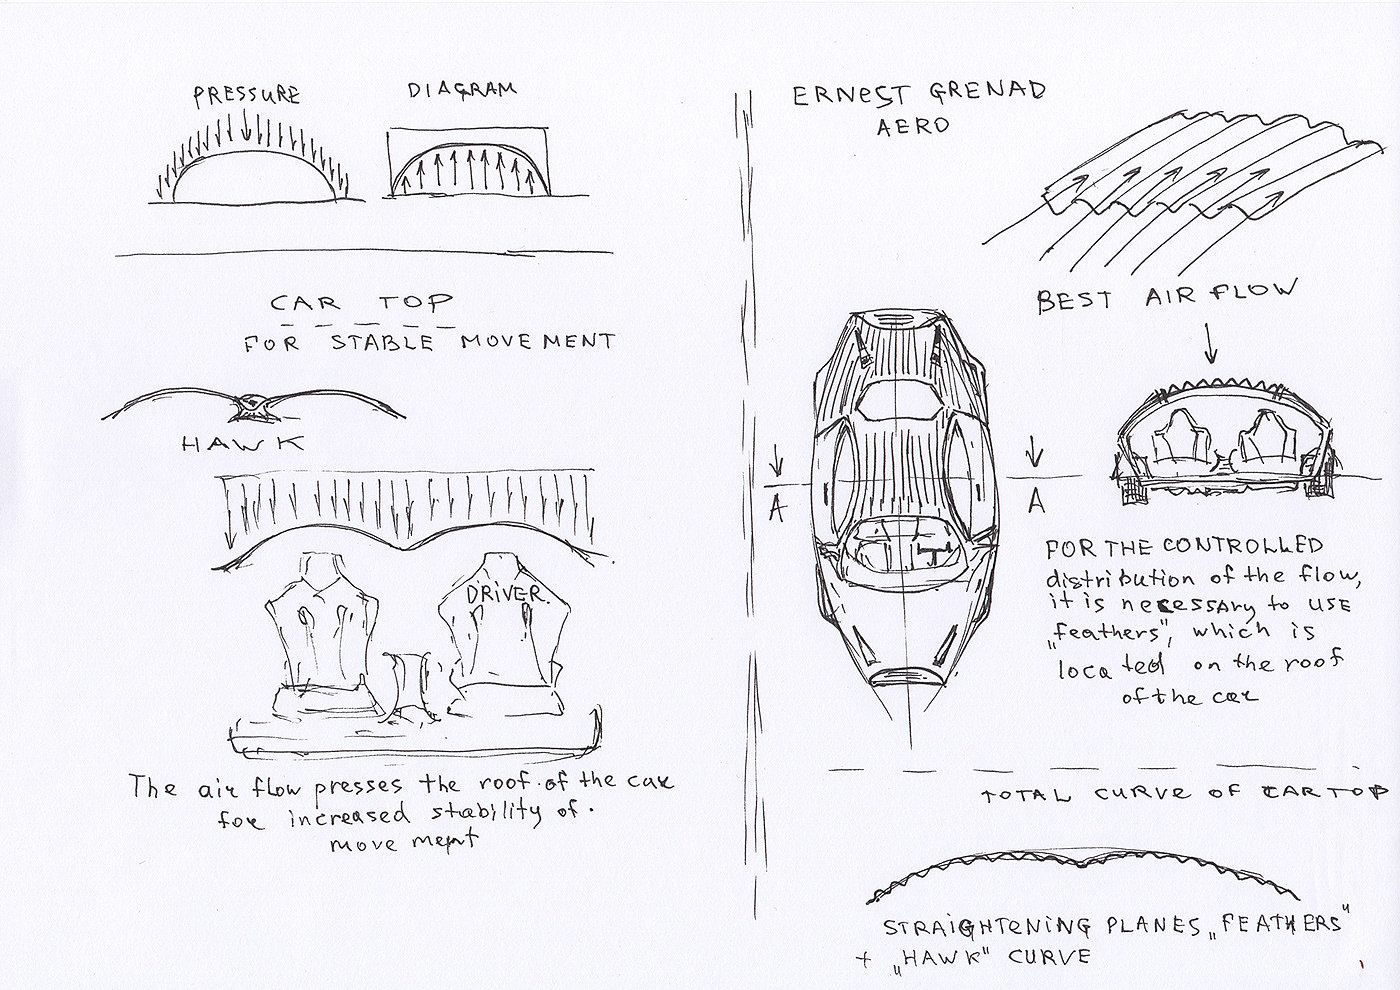 PRESSURE
DIAGRAM
CAR TOP
FOR STABLE MOVEMENT
HAWK
DRIVER.
The air flow presses the roof of the car
for increased stability of.
movement
ERNEST GRENAD
AERO
BEST AIR FLOW
A
A
FOR THE CONTROLLED
distribution of the flow,
it is necessary to USE
„feathers", which is
located on the roof
of the car
TOTAL CURVE OF CAR TOP
STRAIGHTENING PLANES „FEATHERS"
+ „HAWK" CURVE